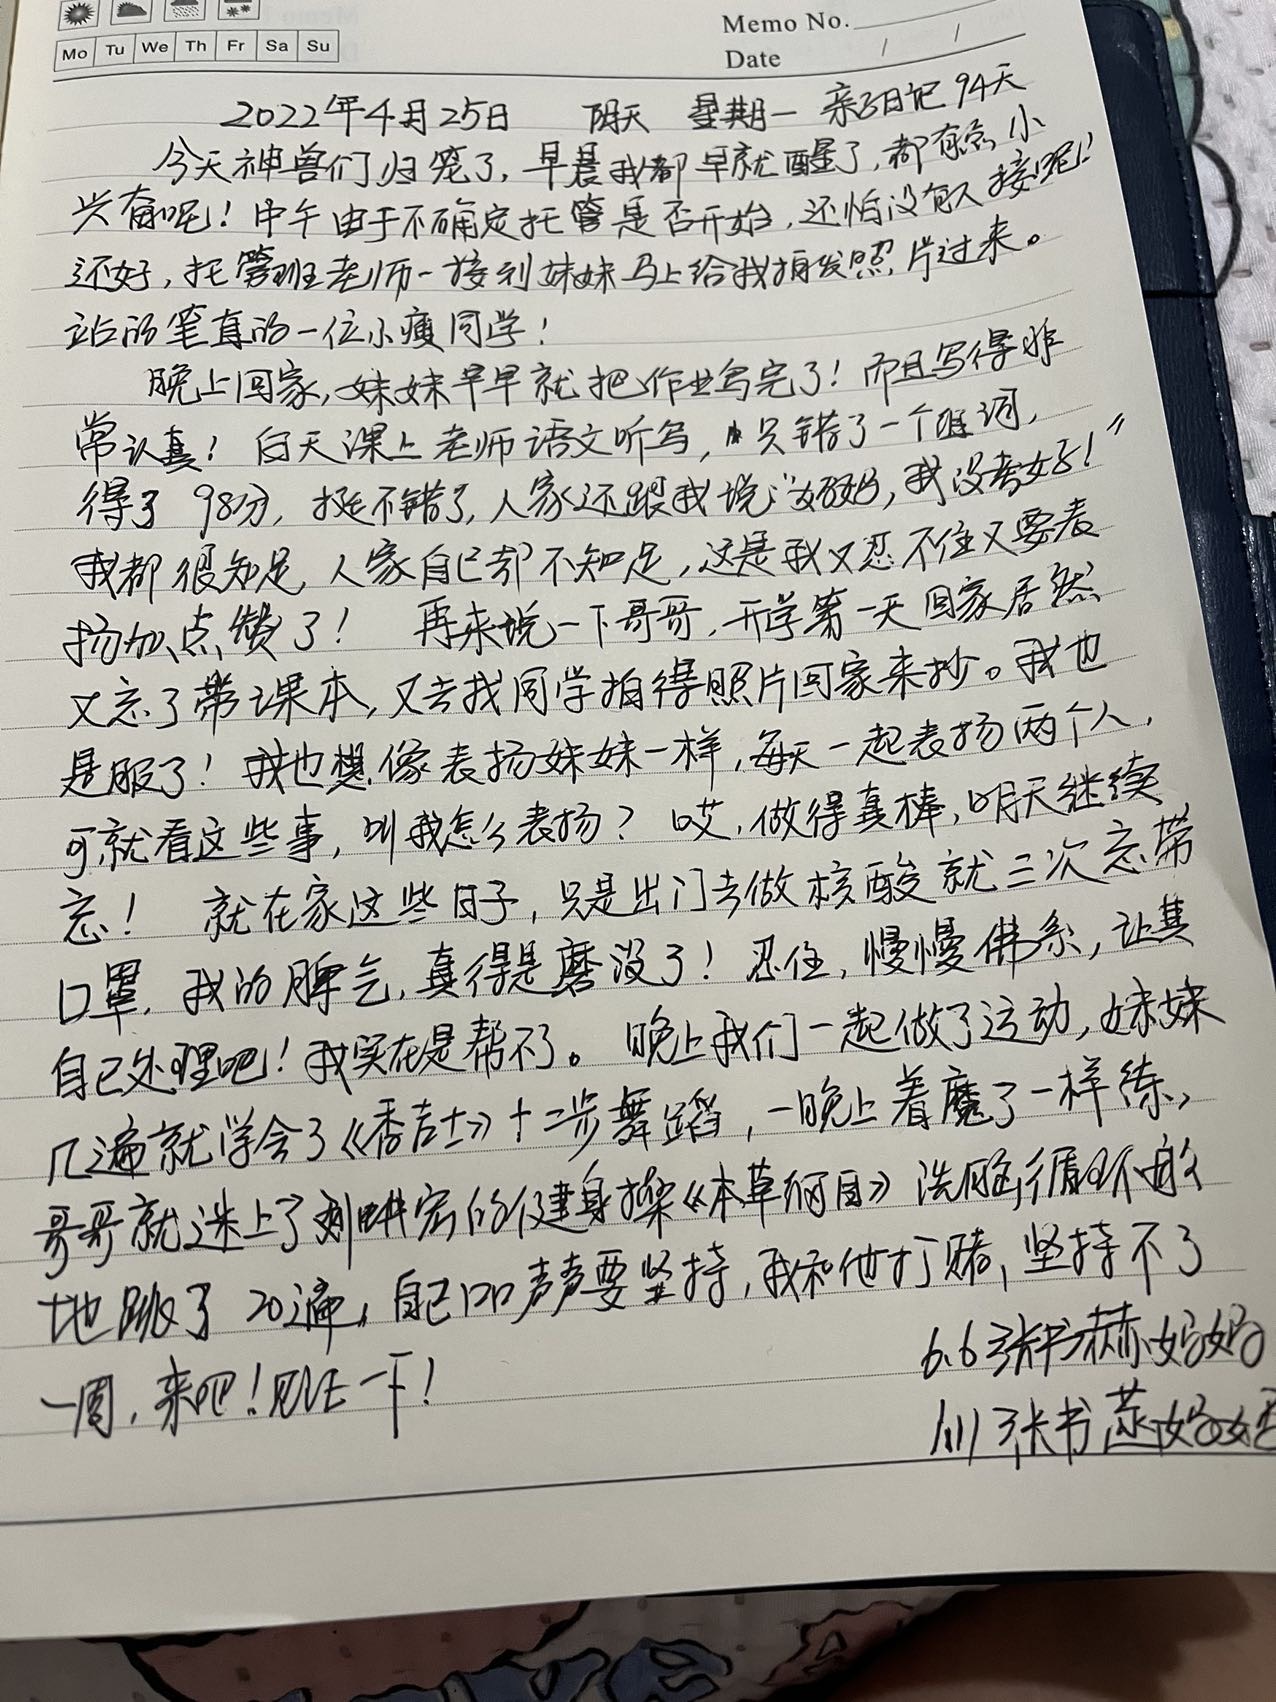 Mo Tu We Th Fr Sa Su
Memo No.
Date / /
2022年4月25日 阴天 星期一 亲子日记94天
今天神兽们归笼了,早晨我都早就醒了,都有点小
兴奋呢!中午由于不确定托管是否开始,还怕没有人接呢!
还好,托管班老师一接到妹妹马上给我拍发照片过来。
站的笔直的一位小瘦同学!
晚上回家,妹妹早早就把作业写完了!而且写得非
常认真!白天课上老师语文听写,只错了一个组词,
得了98分,挺不错了,人家还跟我说“妈妈,我没考好!”
我都很知足,人家自己却不知足,这是我又忍不住又要表
扬加点赞了! 再来说一下哥哥,开学第一天回家居然
又忘了带课本,又去找同学拍得照片回家来抄。我也
是服了!我也想像表扬妹妹一样,每天一起表扬两个人,
可就看这些事,叫我怎么表扬?哎,做得真棒,明天继续
忘! 就在家这些日子,只是出门去做核酸就三次忘带
口罩,我的脾气,真得是磨没了!忍住,慢慢佛系,让其
自己处理吧!我实在是帮不了。晚上我们一起做了运动,妹妹
几遍就学会了《香吉士》十二步舞蹈,一晚上着魔了一样练,
哥哥就迷上了刘畊宏的健身操《本草纲目》洗脑循环般
地跳了20遍,自己口口声声要坚持,我和他打赌,坚持不了
一周,来吧!见证一下!
6.6张书赫妈妈
1.11张书燕妈妈